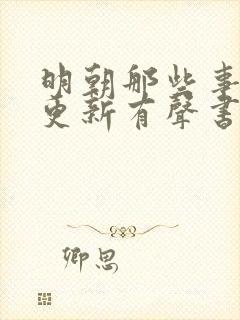 明朝那些事
更新有聲書
卿思